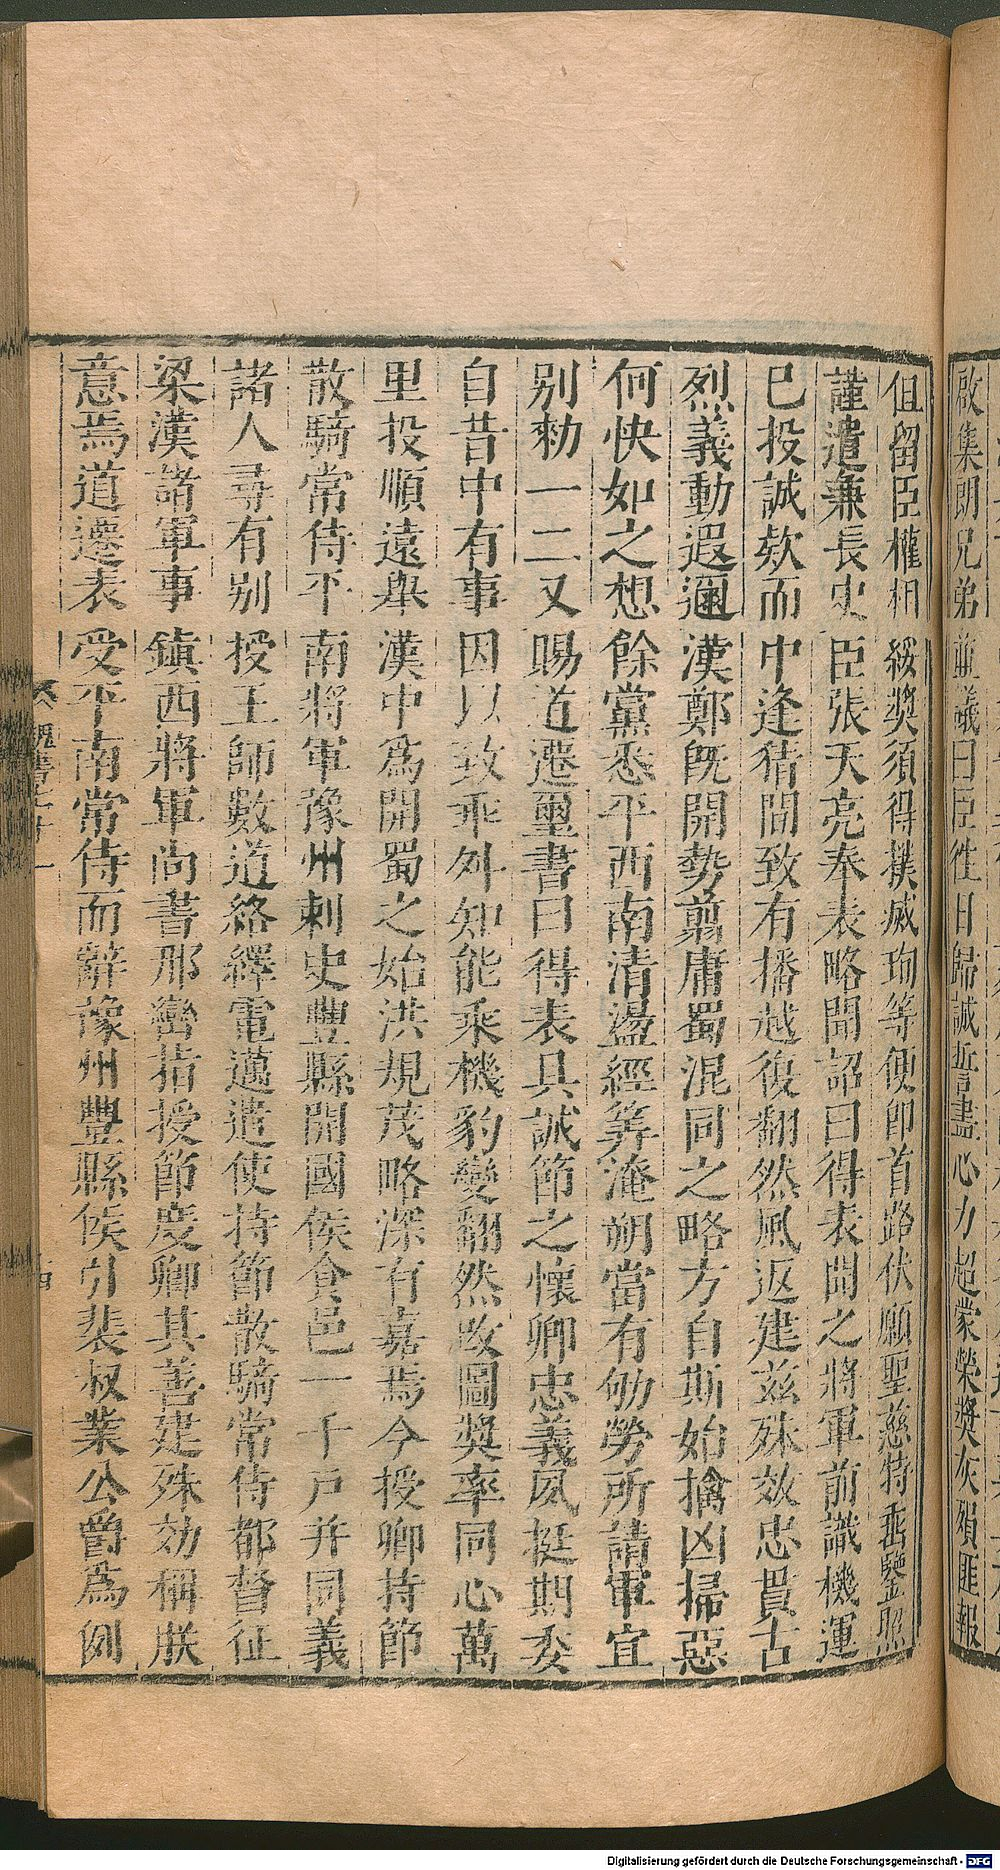 啟集朗兄弟並議曰臣往日歸誠誓盡心力超蒙榮獎灰殞匪報
但留臣權相綏獎須得撲滅珣等便即首路伏願聖慈特垂鑒照
謹遣兼長史臣張天亮奉表略聞詔曰得表聞之將軍前識機運
已投誠欵而中逢猜間致有播越復翻然風返建茲殊效忠貫古
烈義動遐邇漢鄭既開勢翦庸蜀混同之略方自斯始擒凶掃惡
何快如之想餘黨悉平西南清盪經筭淹朔當有劬勞所請軍宜
别勑一二又賜道遷璽書曰得表具誠節之懷卿忠義夙挺期委
自昔中有事因以致乖外知能乘機豹變翻然改圖奬率同心萬
里投順遠舉漢中爲開蜀之始洪規茂略深有嘉焉今授卿持節
散騎常侍平南將軍豫州刺史豐縣開國侯食邑一千戶并同義
諸人尋有别授王師數道絡繹電邁遣使持節散騎常侍都督征
梁漢諸軍事鎭西將軍尚書邢巒指授節度卿其善建殊効稱朕
意焉道遷表受平南常侍而辭豫州豐縣侯引裴叔業公爵爲例
魏書七十一
四
Digitalisierung gefördert durch die Deutsche Forschungsgemeinschaft - DFG